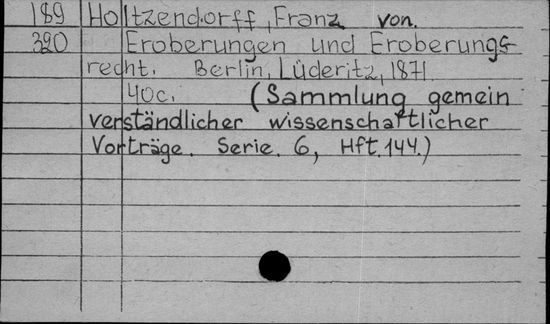 189 Holtzendorff, Franz von.
320 Eroberungen und Eroberungs
recht. Berlin, Lüderitz, 1871.
40c. (Sammlung gemein
verständlicher wissenschaftlicher
Vorträge. Serie. 6, Hft. 144.)